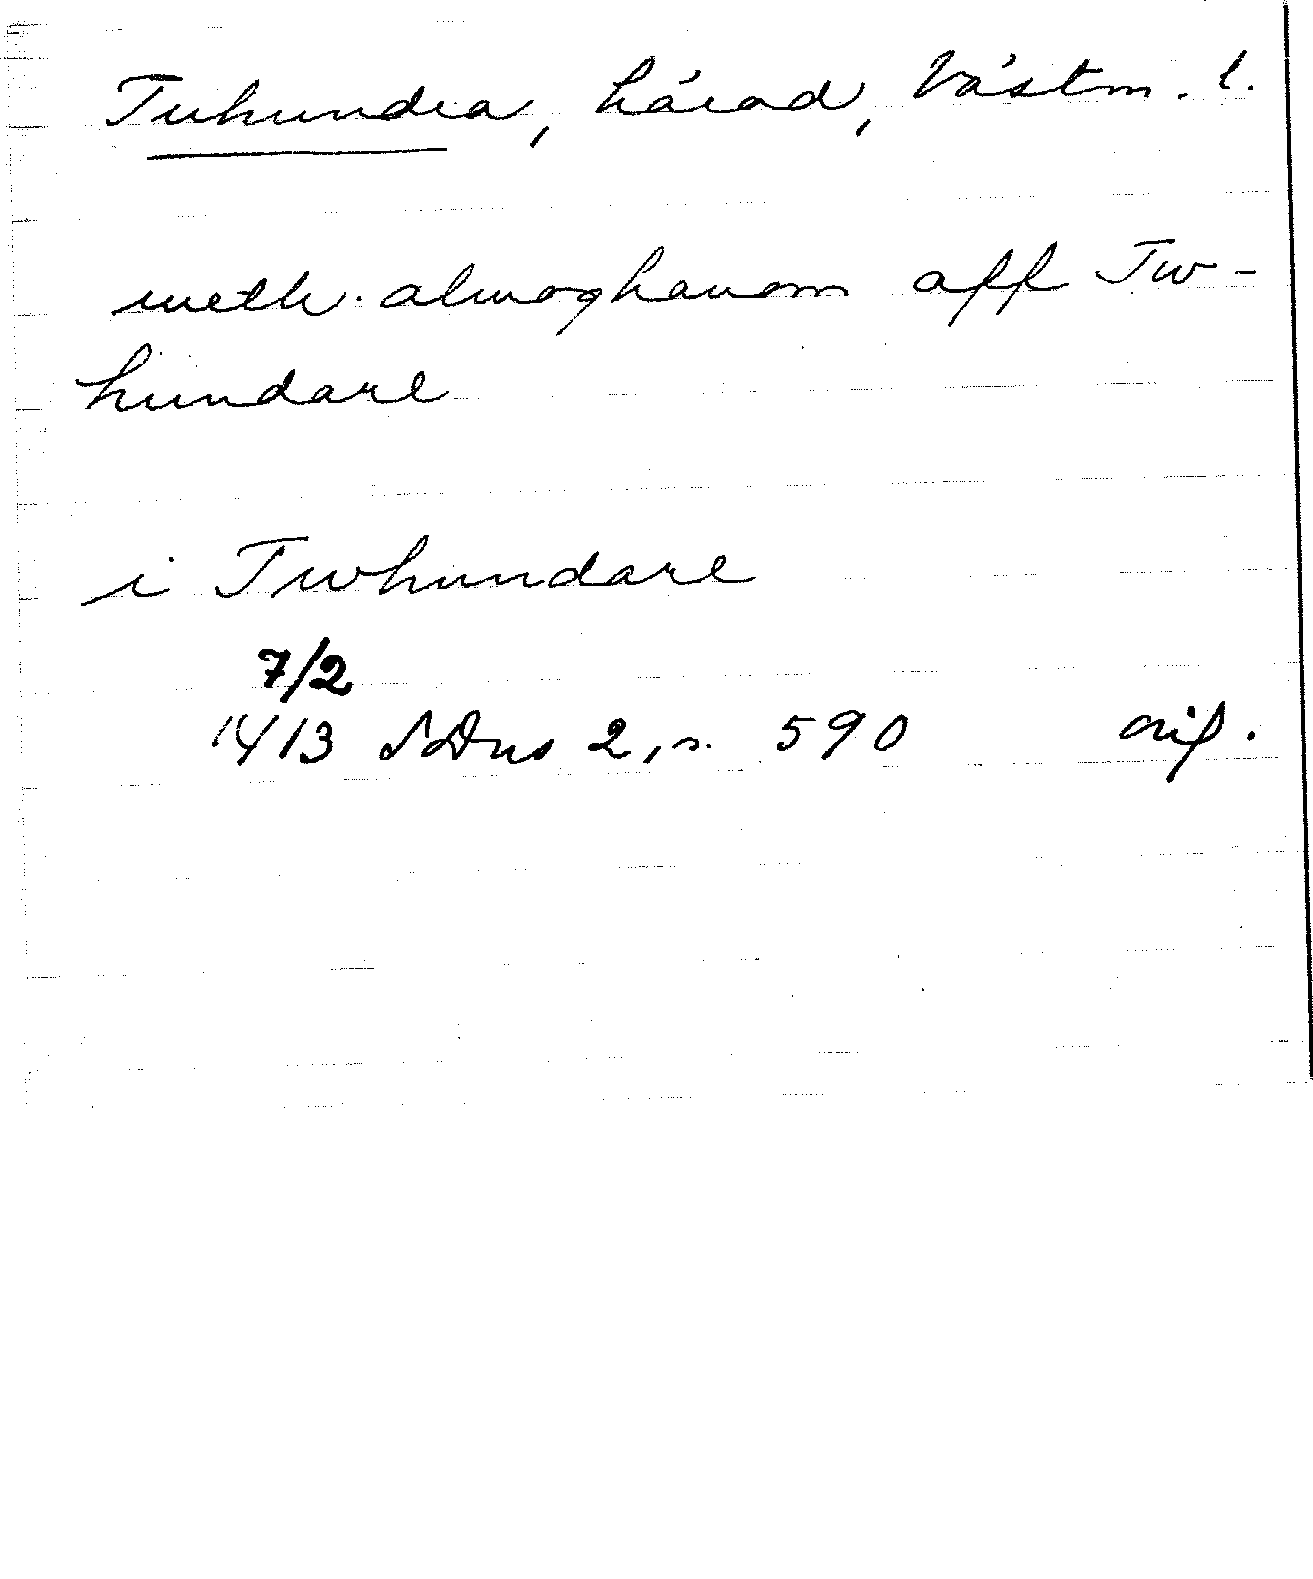 Tuhundra, härad, Västm. l.
meth almoghanom aff Tw-
hundare
i Twhundare
7/2
1413 SDns 2, s. 590 orig.